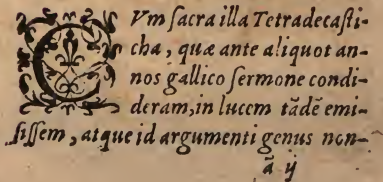 CVm sacra illa Tetradecasti-
cha, quæ ante aliquot an-
nos gallico sermone condi-
deram, in lucem tādē emi-
sissem, atque id argumenti genus non-
ā ij